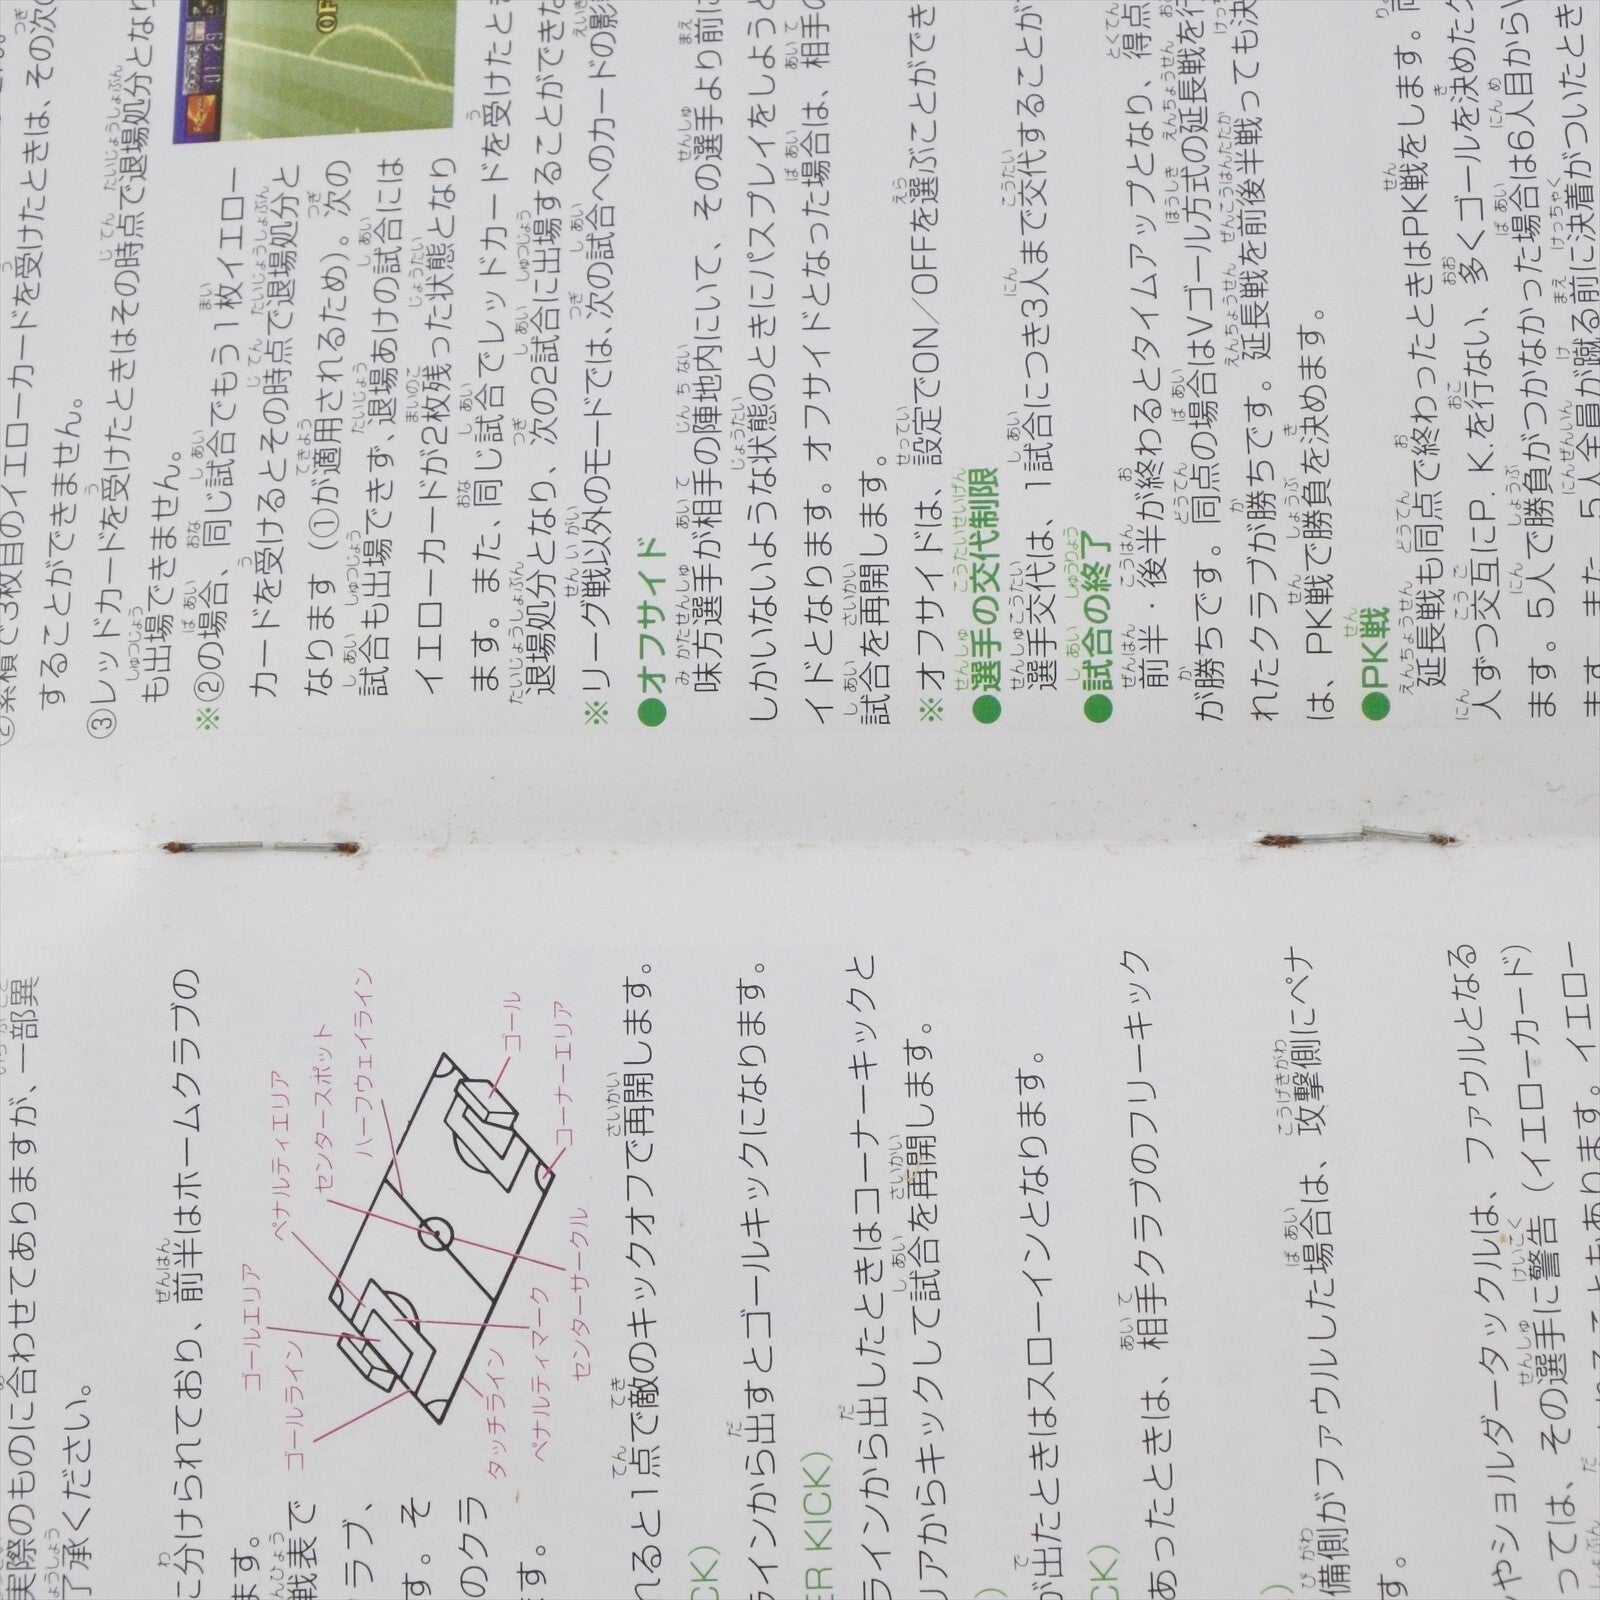 実際のものに合わせてありますが、一部異
了承ください。
に分けられており、前半はホームクラブの
ます。
戦表で
ラブ、
す。そ
のクラ
ます。
ゴールエリア
ペナルティエリア
センタースポット
ハーフウェイライン
ゴールライン
ゴール
タッチライン
ペナルティマーク
センターサークル
コーナーエリア
れると1点で敵のキックオフで再開します。
CK)
ラインから出すとゴールキックになります。
ER KICK)
ラインから出したときはコーナーキックと
リアからキックして試合を再開します。
)
が出たときはスローインとなります。
CK)
あったときは、相手クラブのフリーキック
)
備側がファウルした場合は、攻撃側にペナ
す。
やショルダータックルは、ファウルとなる
っては、その選手に警告（イエローカード）
こともあります。イエロー
②累積で3枚目のイエローカードを受けたときは、その次の
することができません。
③レッドカードを受けたときはその時点で退場処分となり
も出場できません。
※②の場合、同じ試合でもう1枚イエロー
カードを受けるとその時点で退場処分と
なります（①が適用されるため）。次の
試合も出場できず、退場あけの試合には
イエローカードが2枚残った状態となり
ます。また、同じ試合でレッドカードを受けたとき
退場処分となり、次の2試合に出場することができな
※リーグ戦以外のモードでは、次の試合へのカードの影
●オフサイド
味方選手が相手の陣地内にいて、その選手より前に
しかいないような状態のときにパスプレイをしようと
イドとなります。オフサイドとなった場合は、相手の
試合を再開します。
※オフサイドは、設定でON／OFFを選ぶことができ
●選手の交代制限
選手交代は、1試合につき3人まで交代することが
●試合の終了
前半・後半が終わるとタイムアップとなり、得点
が勝ちです。同点の場合はVゴール方式の延長戦を行
れたクラブが勝ちです。延長戦を前後半戦っても決
は、PK戦で勝負を決めます。
●PK戦
延長戦も同点で終わったときはPK戦をします。両
人ずつ交互にP. K.を行ない、多くゴールを決めたク
ます。5人で勝負がつかなかった場合は6人目から
ます。また、5人全員が蹴る前に決着がついたとき
01:29
OF